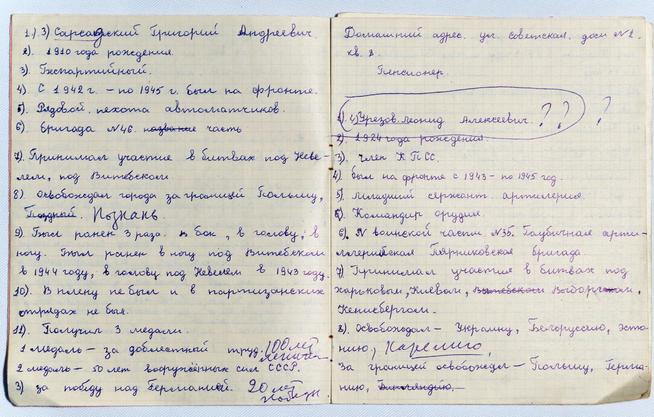 1) 3) Сарсадский Григорий Андреевич.
2). 1910 года рождения.
3). Беспартийный.
4). С 1942 г. – по 1945 г. был на фронте.
5). Рядовой, пехота автоматчиков.
6). Бригада №46. название часть
7). Принимал участие в битвах под Неве-
лем, под Витебском
8). Освобождал города за границей Польшу,
Познань.
9). Был ранен 3 раза. в бок, в голову, в
ногу. Был ранен в ногу под Витебском
в 1944 году, в голову под Невелем в 1943 году.
10). В плену не был и в партизанских
отрядах не был.
11). Получил 3 медали.
1 медаль – за доблестный труд. 100 лет
2 медаль – 50 лет вооружённых сил СССР.
3) за победу над Германией. 20 лет
победы
Домашний адрес. ул. советская. дом №1.
кв. 2.
Пенсионер.
1) 4) Урезов Леонид Алексеевич. ? ? ?
2). 1924 года рождения.
3). Член КПСС.
4). был на фронте с 1943 – по 1945 год.
5). Младший сержант. артилерия.
6). Командир орудия.
6). N воинской части №35. Гаубичная арти-
лерийская бригада.
7) Принимал участие в битвах под
Харьковым, Киевом, Витебском Выборгом,
Кенисбергом.
8). Освобождал – Украину, Белоруссию, Эсто-
нию, Карелию,
За границей освобождал – Польшу, Герма-
нию, Финляндию,